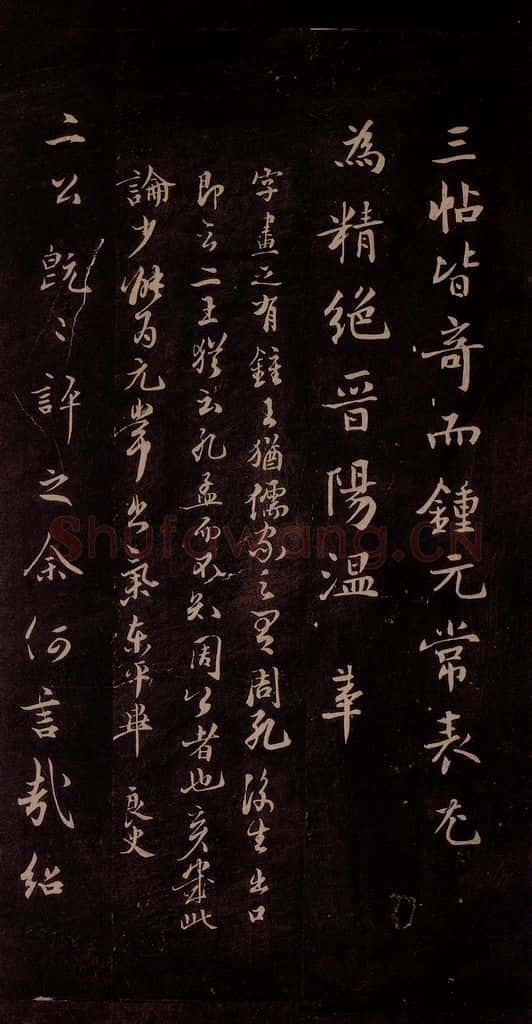 三帖皆奇而鍾元常表尤
為精絕晉陽溫革
字畫之有鍾王猶儒家之周孔後生出口
即言二王猶云孔孟而不知周公者也此
論少能為元常出氣東平畢良史
二公既評之余何言哉紹
Shufawang.CN